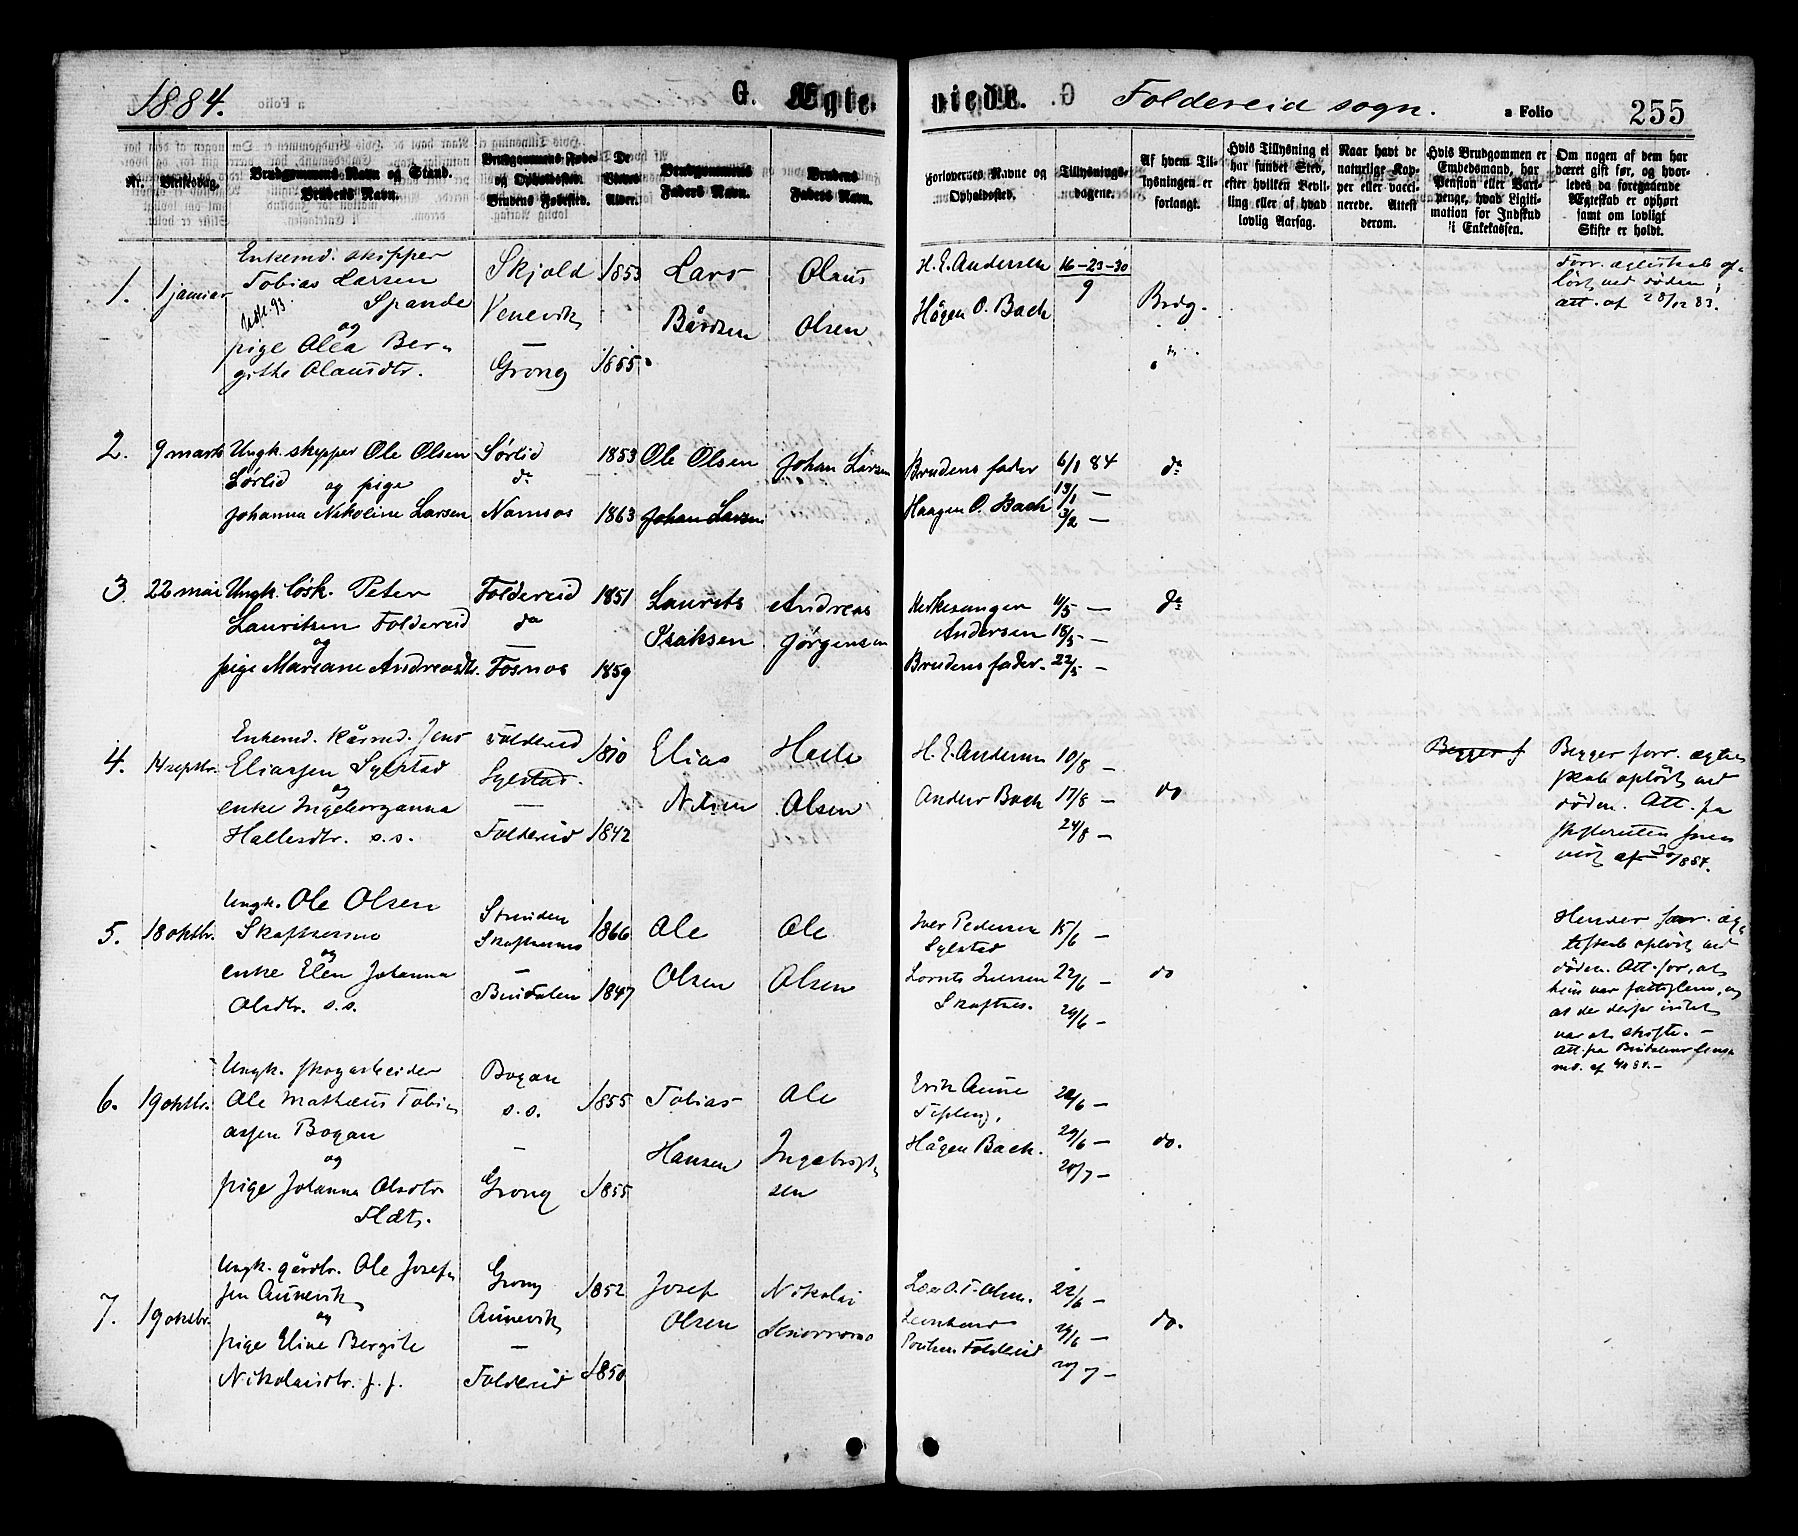 1884.
G. Ægte-
viede.
Foldereid sogn.
a Folio
255
Nr.
Vielsesdag.
Brudgommens Navn og Stand.
Brudens Navn.
Brudgommens Føde-
og Opholdssted.
Brudens Fødested.
De
Viedes
Alder.
Brudgommens
Faders Navn.
Brudens
Faders Navn.
Forlovernes Navne og
Opholdssted.
Tillysnings-
dagene.
Af hvem Til-
lysningen er
forlangt.
Hvis Tillysning ei
har fundet Sted,
efter hvilken Bevil-
ling eller af hvad
lovlig Aarsag.
Naar havt de
naturlige Kop-
per eller vacci-
nerede. Attest
derom.
Hvis Brudgommen er
Embedsmand, har
Pension eller Var-
penge, hvad Ligiti-
mation for Indskud
i Enkekassen.
Om nogen af dem har
været gift før, og hvor-
ledes da foregaaende
Ægteskab er ophørt
samt om lovligt
Skifte er holdt.
1.
1 januar
Enkemd. skipper
Tobias Larsen
Spande
og
pige Olea Ber-
gitte Olausdtr.
Skjold
Venevik
—
Grong
1853
1855
Lars
Bårdsen
Olaus
Olsen
H. E. Andersen
Hågen O. Bach
16-23-30
9
Brdg.
Forr. ægteskab op-
løst ved døden;
att. af 28/12 83.
2.
9 marts
Ungk. skipper Ole Olsen
Sørlid og pige
Johanna Nikoline Larsen
Sørlid
do
Namsos
1853
1863
Ole Olsen
Johan Larsen
Johan Larsen
Brudens fader
Haagen O. Bach
6/1 84
13/1 —
3/2 —
do
3.
22 mai
Ungk. løsk. Peter
Lauritsen Foldereid
og
pige Mariane Andreasdtr.
Foldereid
do
Fosnes
1851
1859
Laurits
Isaksen
Andreas
Jørgensen
Kirkesanger
Andersen
Brudens fader.
11/5 —
18/5 —
22/5 —
do
4.
14 septbr.
Enkemd. kårmd. Jens
Eliassen Sylstad
og
enke Ingeborganna
Hallesdtr. s.s.
Foldereid
Sylstad
—
Foldereid
1810
1842
Elias
Nilsen
Helle
Olsen
H. E. Andersen
Anders Bach
10/8 —
17/8 —
24/8 —
do
Begges f
Begges forr. ægte-
skab opløst ved
døden. Att. fra
5.
18 oktbr.
Ungk. Ole Olsen
Skaftnesmo
og
enke Elen Johanna
Olsdtr. s.s.
Skaftnesmo
—
Bindalen
1866
1847
Ole
Olsen
Ole
Olsen
Iver Pedersen
Sylstad
Lornts Iversen
Skaftnes.
15/6 —
22/6 —
29/6 —
do
Hendes forr. æg-
teskab opløst ved
døden. Att. for, at
hun var fattiglem, og
at der derfor intet
var at skifte. —
Att. fra Bindalens lens-
6.
19 oktbr.
Ungk. skogarbeider
Ole Mathæus Tobi-
assen Bogan
og
pige Johanna Olsdtr.
Flåt.
Bogan
s.s.
—
Grong
1855
1855
Tobias
Hansen
Ole
Ingebrigt-
sen
Erik Aune
Hågen Bach.
22/6 —
29/6 —
20/7 —
do.
7.
19 oktbr.
Ungk. gårdbr. Ole Josef-
sen Aunevik
og
pige Eline Bergite
Nikolaisdtr. s. s.
Grong
Aunevik
—
Foldereid
1852
1850
Josef
Olsen
Nikolai
O. T. Olsen.
Foldereid
22/6 —
29/6 —
20/7 —
do.